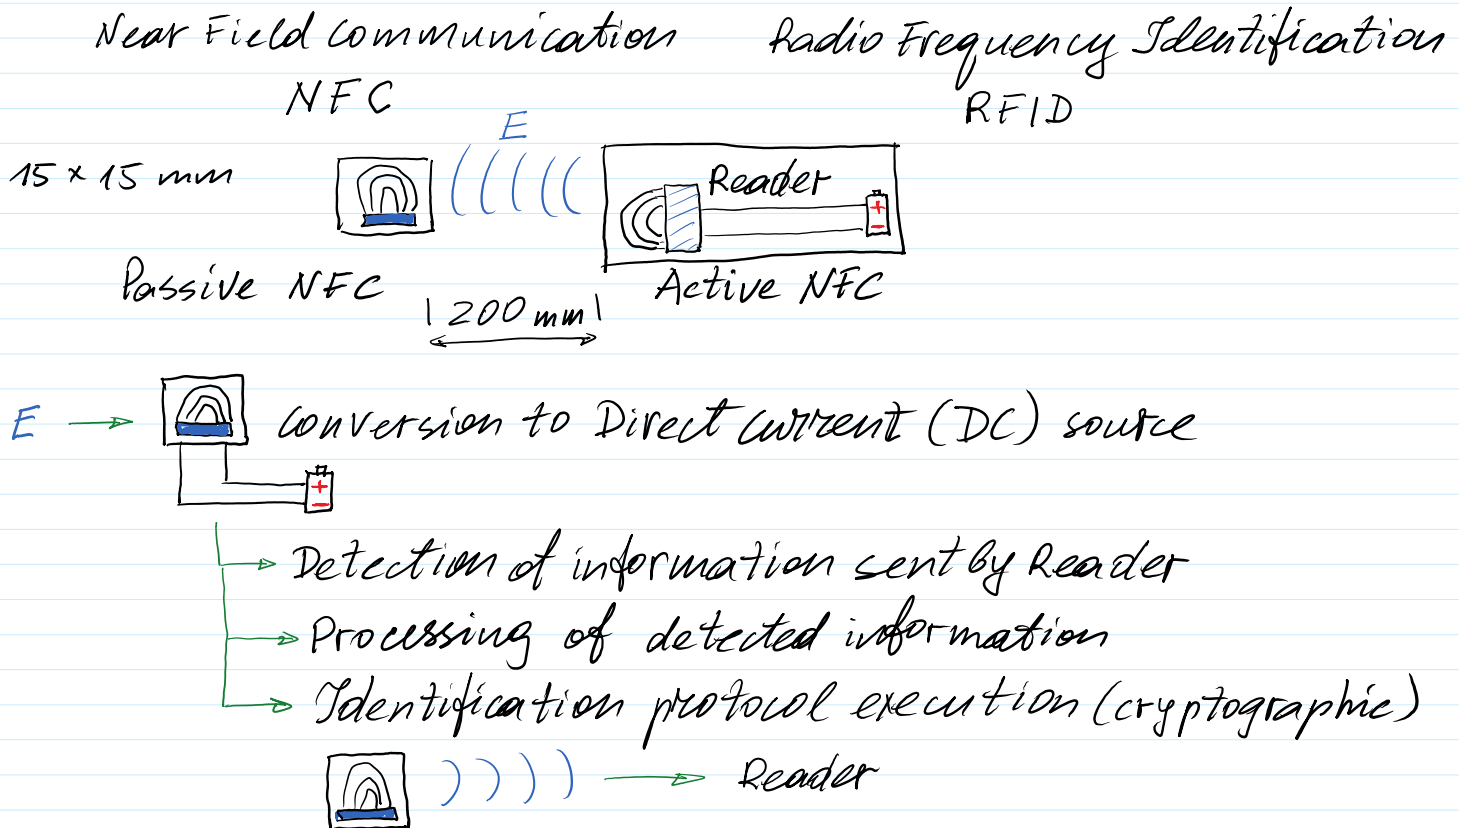 Near Field Communication
Radio Frequency Identification
NFC
RFID
E
15 × 15 mm
Reader
+
−
Passive NFC
Active NFC
200 mm
E
Conversion to Direct Current (DC) source
+
−
Detection of information sent by Reader
Processing of detected information
Identification protocol execution (cryptographic)
Reader